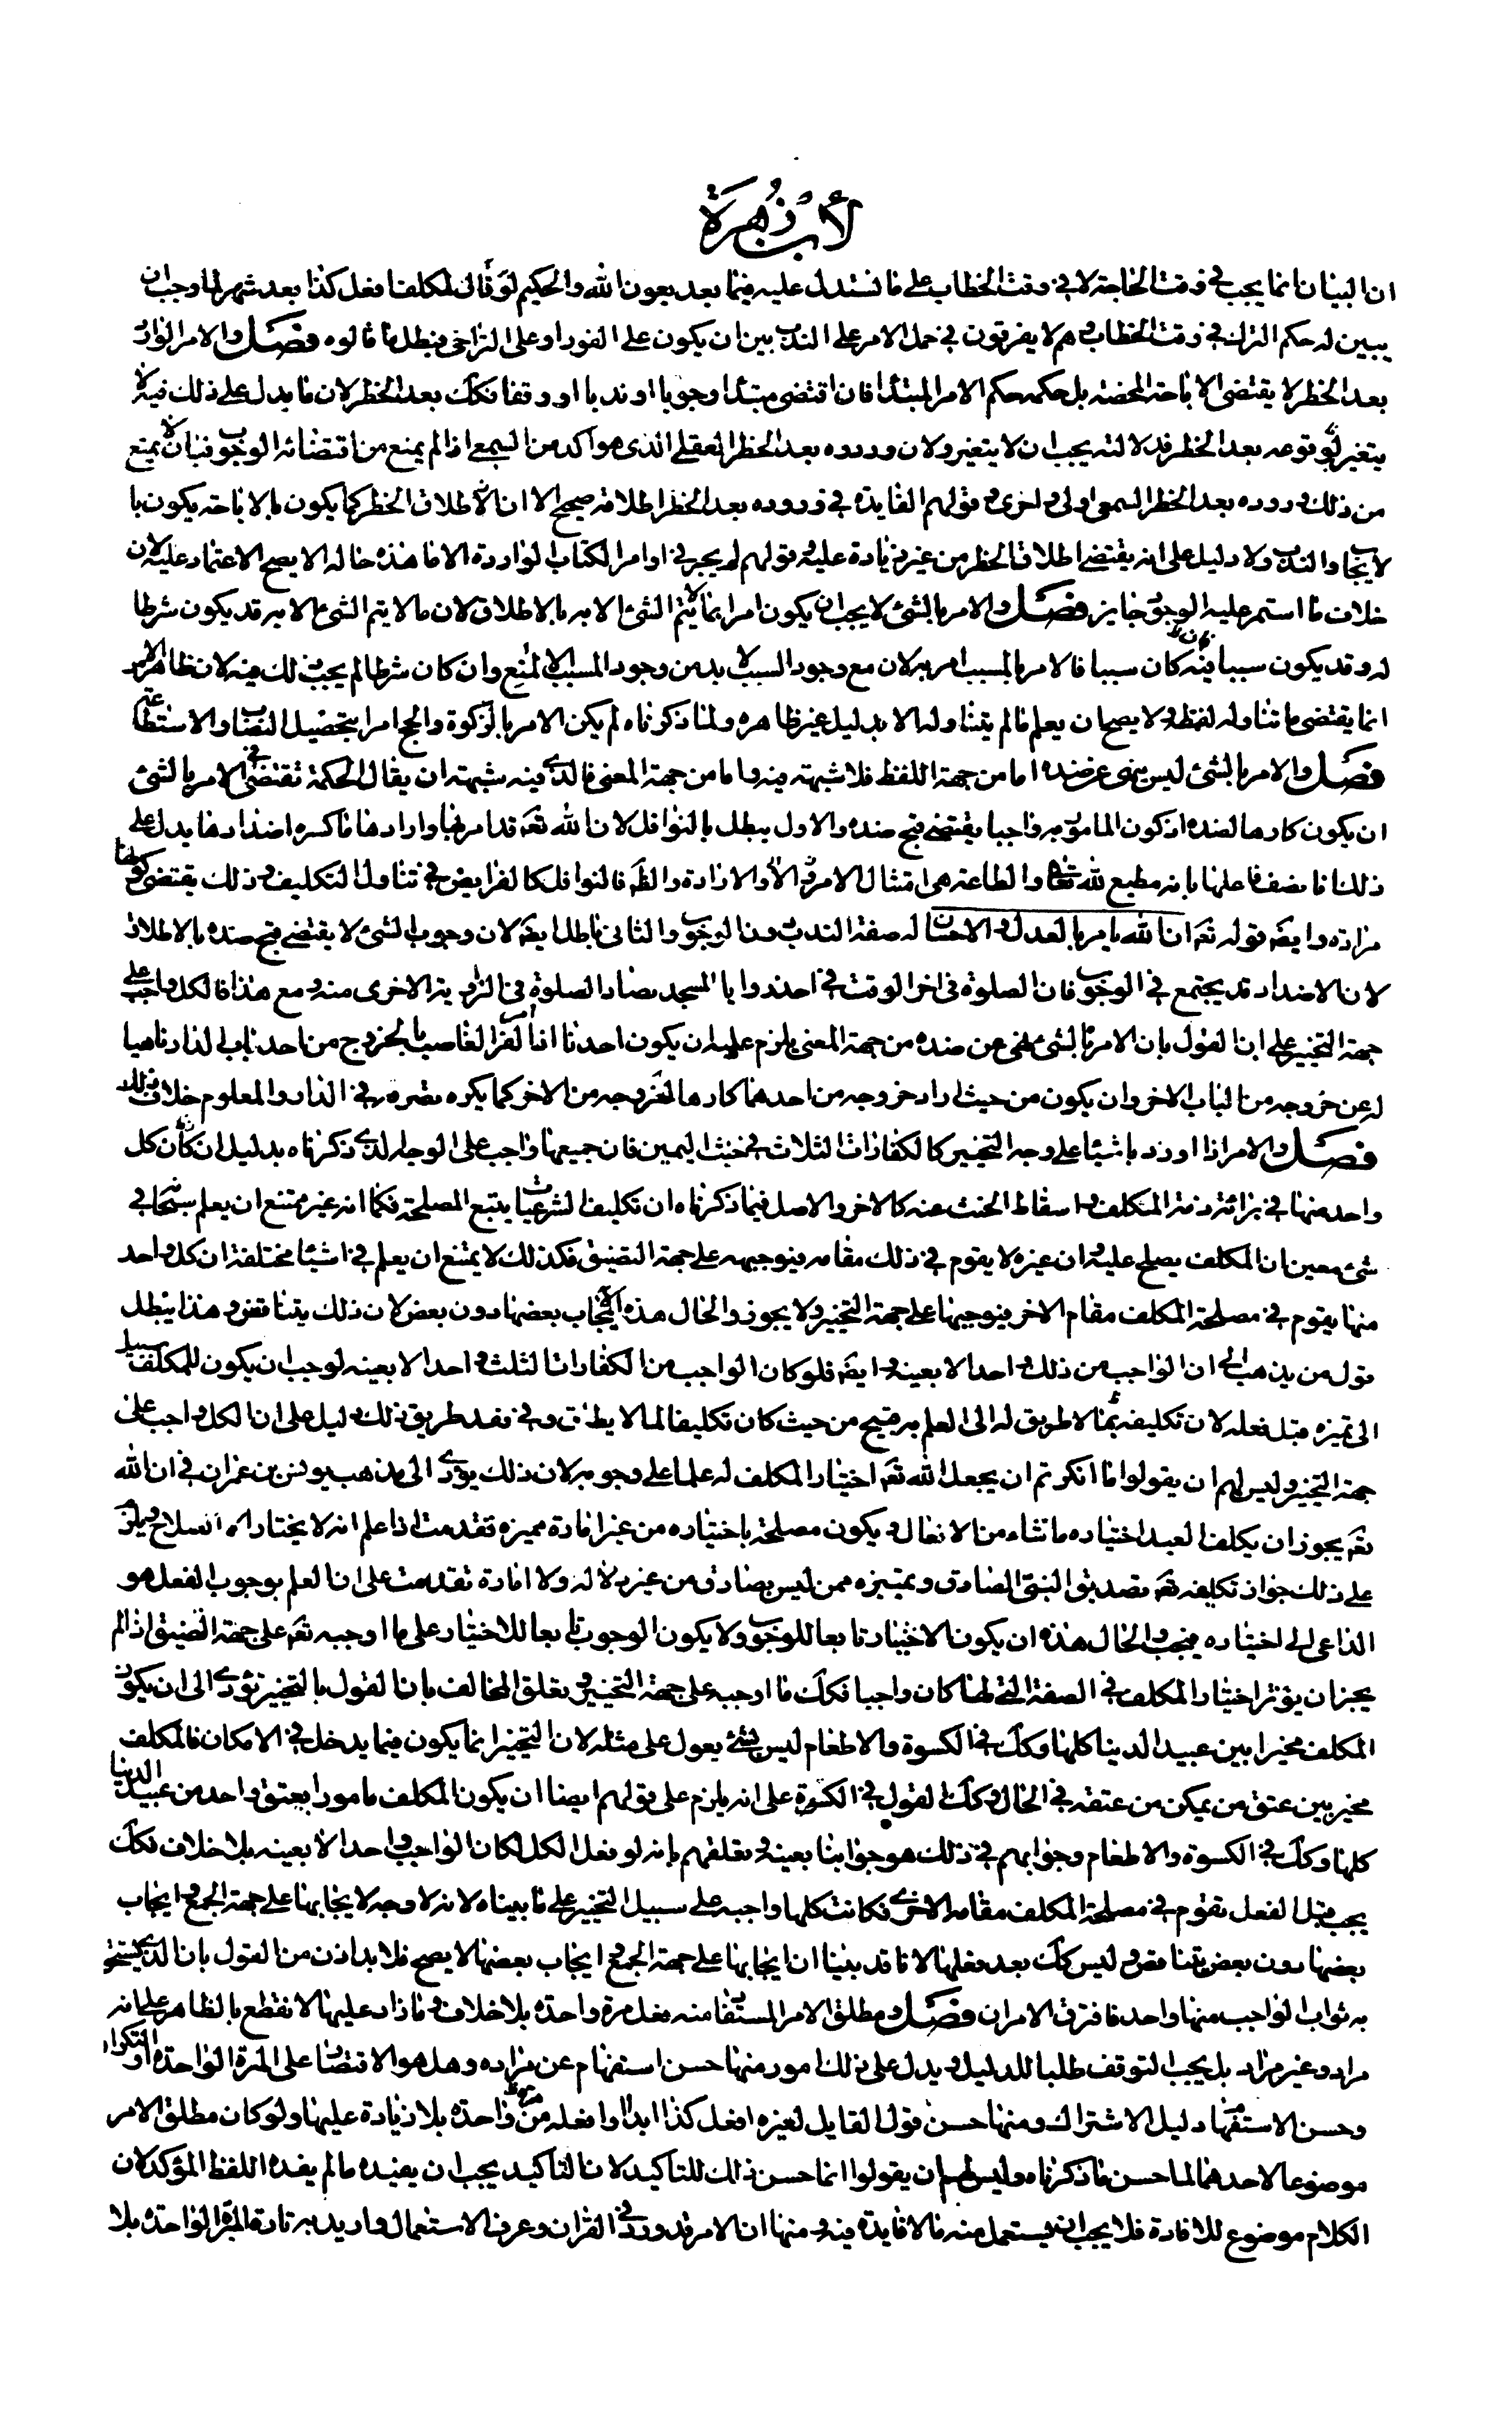 لأبن زهرة
ان البيان انما يجب في وقت الحاجة لا في وقت الخطاب على ما نستدل عليه فيما بعد بعون الله والحكيم لو قال لمكلف افعل كذا بعد شهر لما وجب ان
يبين له حكم الترك في وقت الخطاب وهم لا يفرقون في حمل الامر على الندب بين ان يكون على الفور او على التراخي فبطل ما قالوه فصل والامر الوارد
بعد الحظر لا يقتضي الاباحة المحضة بل حكمه حكم الامر المبتدا فان اقتضى مبتدا وجوبا او ندبا او وقفا فكك بعد الحظر لان ما يدل على ذلك فيه لا
يتغير لوقوعه بعد الحظر فدلالته يجب ان لا يتغير ولان وروده بعد الحظر العقلي الذي هو آكد من السمعي اذا لم يمنع من اقتضائه الوجوب فبان لا يمنع
من ذلك وروده بعد الحظر السمعي اولى واحرى وقولهم الفايدة في وروده بعد الحظر اطلاقه صحيح الا ان الاطلاق الحظر كما يكون بالاباحة يكون با
لايجاب والندب ولا دليل على انه يقتضى اطلاق الحظر من غير زيادة عليه وقولهم لم يجر في اوامر الكتاب الواردة الا ما هذه حاله لا يصح الاعتماد عليه لان
خلاف ما استمر عليه الوجود جايز فصل والامر بالشئ لا يجب ان يكون امرا بما لا يتم الشئ الا به بالاطلاق لان ما لا يتم الشئ الا به قد يكون شرطا
له وقد يكون سببا فيه فان كان سببا فالامر بالمسبب امر به لان مع وجود السبب لا بد من وجود المسبب الا لمنع وان كان شرطا لم يجب ذلك فيه لان ظاهر الامر
انما يقتضى ما تناوله لفظه ولا يصح ان يعلم ما لم يتناوله الا بدليل غير ظاهره ولما ذكرناه لم يكن الامر بالزكوة والحج امرا بتحصيل النصاب والاستطاعة
فصل والامر بالشئ ليس بنهي عن ضده اما من جهة اللفظ فلا شبهة فيه واما من جهة المعنى فالذي فيه شبهته ان يقال الحكمة تقتضى في الامر بالشئ
ان يكون كارها لضده او كون المامور به واجبا يقتضى قبح ضده والاول يبطل بالنوافل لان الله تعه قد امر بها وارادها وما كره اضدادها يدل على
ذلك ما نصف فاعلها بانه مطيع لله تعا والطاعة هي امتثال الامر والارادة وايضه فالنوافل كالفرايض في تناول التكليف وذلك يقتضى كونها
مرادة وايضه قوله تعه ان الله يامر بالعدل والاحسان له صفة الندب ومنا الوجوب والثاني باطل ايضه لان وجوب الشئ لا يقتضى قبح ضده بالاطلاق
لان الاضداد قد يجتمع في الوجوب فان الصلوة في اخر الوقت في احد زوايا المسجد تضاد الصلوة في الزاوية الاخرى منه ومع هذا فالكل واجب على
جهة التخيير على ان القول بان الامر بالشئ نهى عن ضده من جهة المعنى يلزم عليه ان يكون احدنا اذا امر الغاصب بالخروج من احد بابي الدار ناهيا
له عن خروجه من الباب الاخر وان يكون من حيث اراد خروجه من احدهما كارها لخروجه من الاخر كما يكره تصرفه في الدار والمعلوم خلاف ذلك
فصل والامر اذا اورد باشيا على وجه التخيير كالكفارات الثلاث في حنث اليمين فان جميعها واجب على الوجه الذي ذكرناه بدليل ان كان كل
واحد منها في برائة ذمة المتكلف واسقاط الحنث عنه كالاخر والاصل فيما ذكرناه ان تكليف الشرعيات يتبع المصلحة فكما انه غير ممتنع ان يعلم سبحانه في
شئ معين ان المكلف يصلح عليه وان غيره لا يقوم في ذلك مقامه فيوجبه على جهة التضيق فكذلك لا يمتنع ان يعلم في اشيا مختلفة ان كل واحد
منها يقوم في مصلحة المكلف مقام الاخر فيوجبها على جهة التخيير ولا يجوز والحال هذه ايجاب بعضها دون بعض لان ذلك يتناقض وهذا يبطل
قول من يذهب الى ان الواجب من ذلك واحدا لا بعينه وايضه فلو كان الواجب من الكفارات الثلث واحدا لا بعينه لوجب ان يكون للمكلف سبيل
الى تميزه قبل فعله لان تكليفه بما لا طريق له الى العلم به قبيح من حيث كان تكليفا لما لا يطاق وفي فقد طريق ذلك دليل على ان الكل واجب على
جهة التخيير وليس لهم ان يقولوا ما انكرتم ان يجعل الله تعه اختيار المكلف له علما على وجوبه لان ذلك يؤدي الى مذهب يونس بن عمران في ان الله
تعه يجوز ان يكلف العبد اختياره ما تشاء من الافعال ويكون مصلحة باختياره من غير امارة مميزة تقدمت اذا علم انه لا يختار الا الصلاح ويلزم
على ذلك جواز تكليفه تعه تصديق النبي الصادق وتمييزه ممن ليس بصادق من غير دلالة ولا امارة تقدمت على ان العلم بوجوب الفعل هو
الداعي الى اختياره فيجب والحال هذه ان يكون الاختيار تابعا للوجوب ولا يكون الوجوب تابعا للاختيار على ما اوجبه تعه على جهة الضيق اذا لم
يجز ان يؤثر اختيار المكلف في الصفة التي لها كان واجبا فكك ما اوجبه على جهة التخيير وتعلق المخالف بان القول بالتخيير يؤدي الى ان يكون
المكلف مخيرا بين عبيد الدنيا كلها وكك في الكسوة والاطعام ليس بشئ يعول على مثله لان التخيير انما يكون فيما يدخل في الامكان فالمكلف
مخير بين عتق من يمكن من عتقه في الحال وكك القول في الكسوة على انه يلزم على قولهم ايضا ان يكون المكلف مامورا بعتق واحد من عبيد الدنيا
كلها وكك في الكسوة والاطعام وجوابهم في ذلك هو جوابنا بعينه وتعلقهم بانه لو فعل الكل لكان الواجب واحدا لا بعينه بلا خلاف فكك
يجب قبل الفعل يقوم في مصلحة المكلف مقام الاخرى فكانت كلها واجبة على سبيل التخيير على ما بيناه لانه لا وجه لايجابها على جهة الجمع وايجاب
بعضها دون بعض يتناقض وليس كك بعد فعلها لانا قد بينا ان ايجابها على جهة الجمع وايجاب بعضها لا يصح فلا بد اذن من القول بان الذي يستحق
به ثواب الواجب منها واحد فافترق الامران فصل ومطلق الامر المستفا منه بفعل مرة واحدة بلا خلاف وما زاد عليها لا نقطع بالظاهر على انه
مراد وغير مراد بل يجب التوقف طلبا للدليل ويدل على ذلك امور منها حسن استفهام عن مراده وهل هو الاقتصار على المرة الواحدة او التكرار
وحسن الاستفها دليل الاشتراك ومنها حسن قول القايل لغيره افعل كذا ابدا وافعله مرة واحدة بلا زيادة عليها ولو كان مطلق الامر
موضوعا لاحدهما لما حسن ما ذكرناه وليس لهم ان يقولوا انما حسن ذلك للتاكيد لان التاكيد يجب ان يفيده ما لم يفده اللفظ المؤكد لان
الكلام موضوع للافادة فلا يجب ان يستعمل منه ما لا فايدة فيه ومنها ان الامر قد ورد في القران وعرف الاستعمال واريد به تارة المرة الواحدة بلا